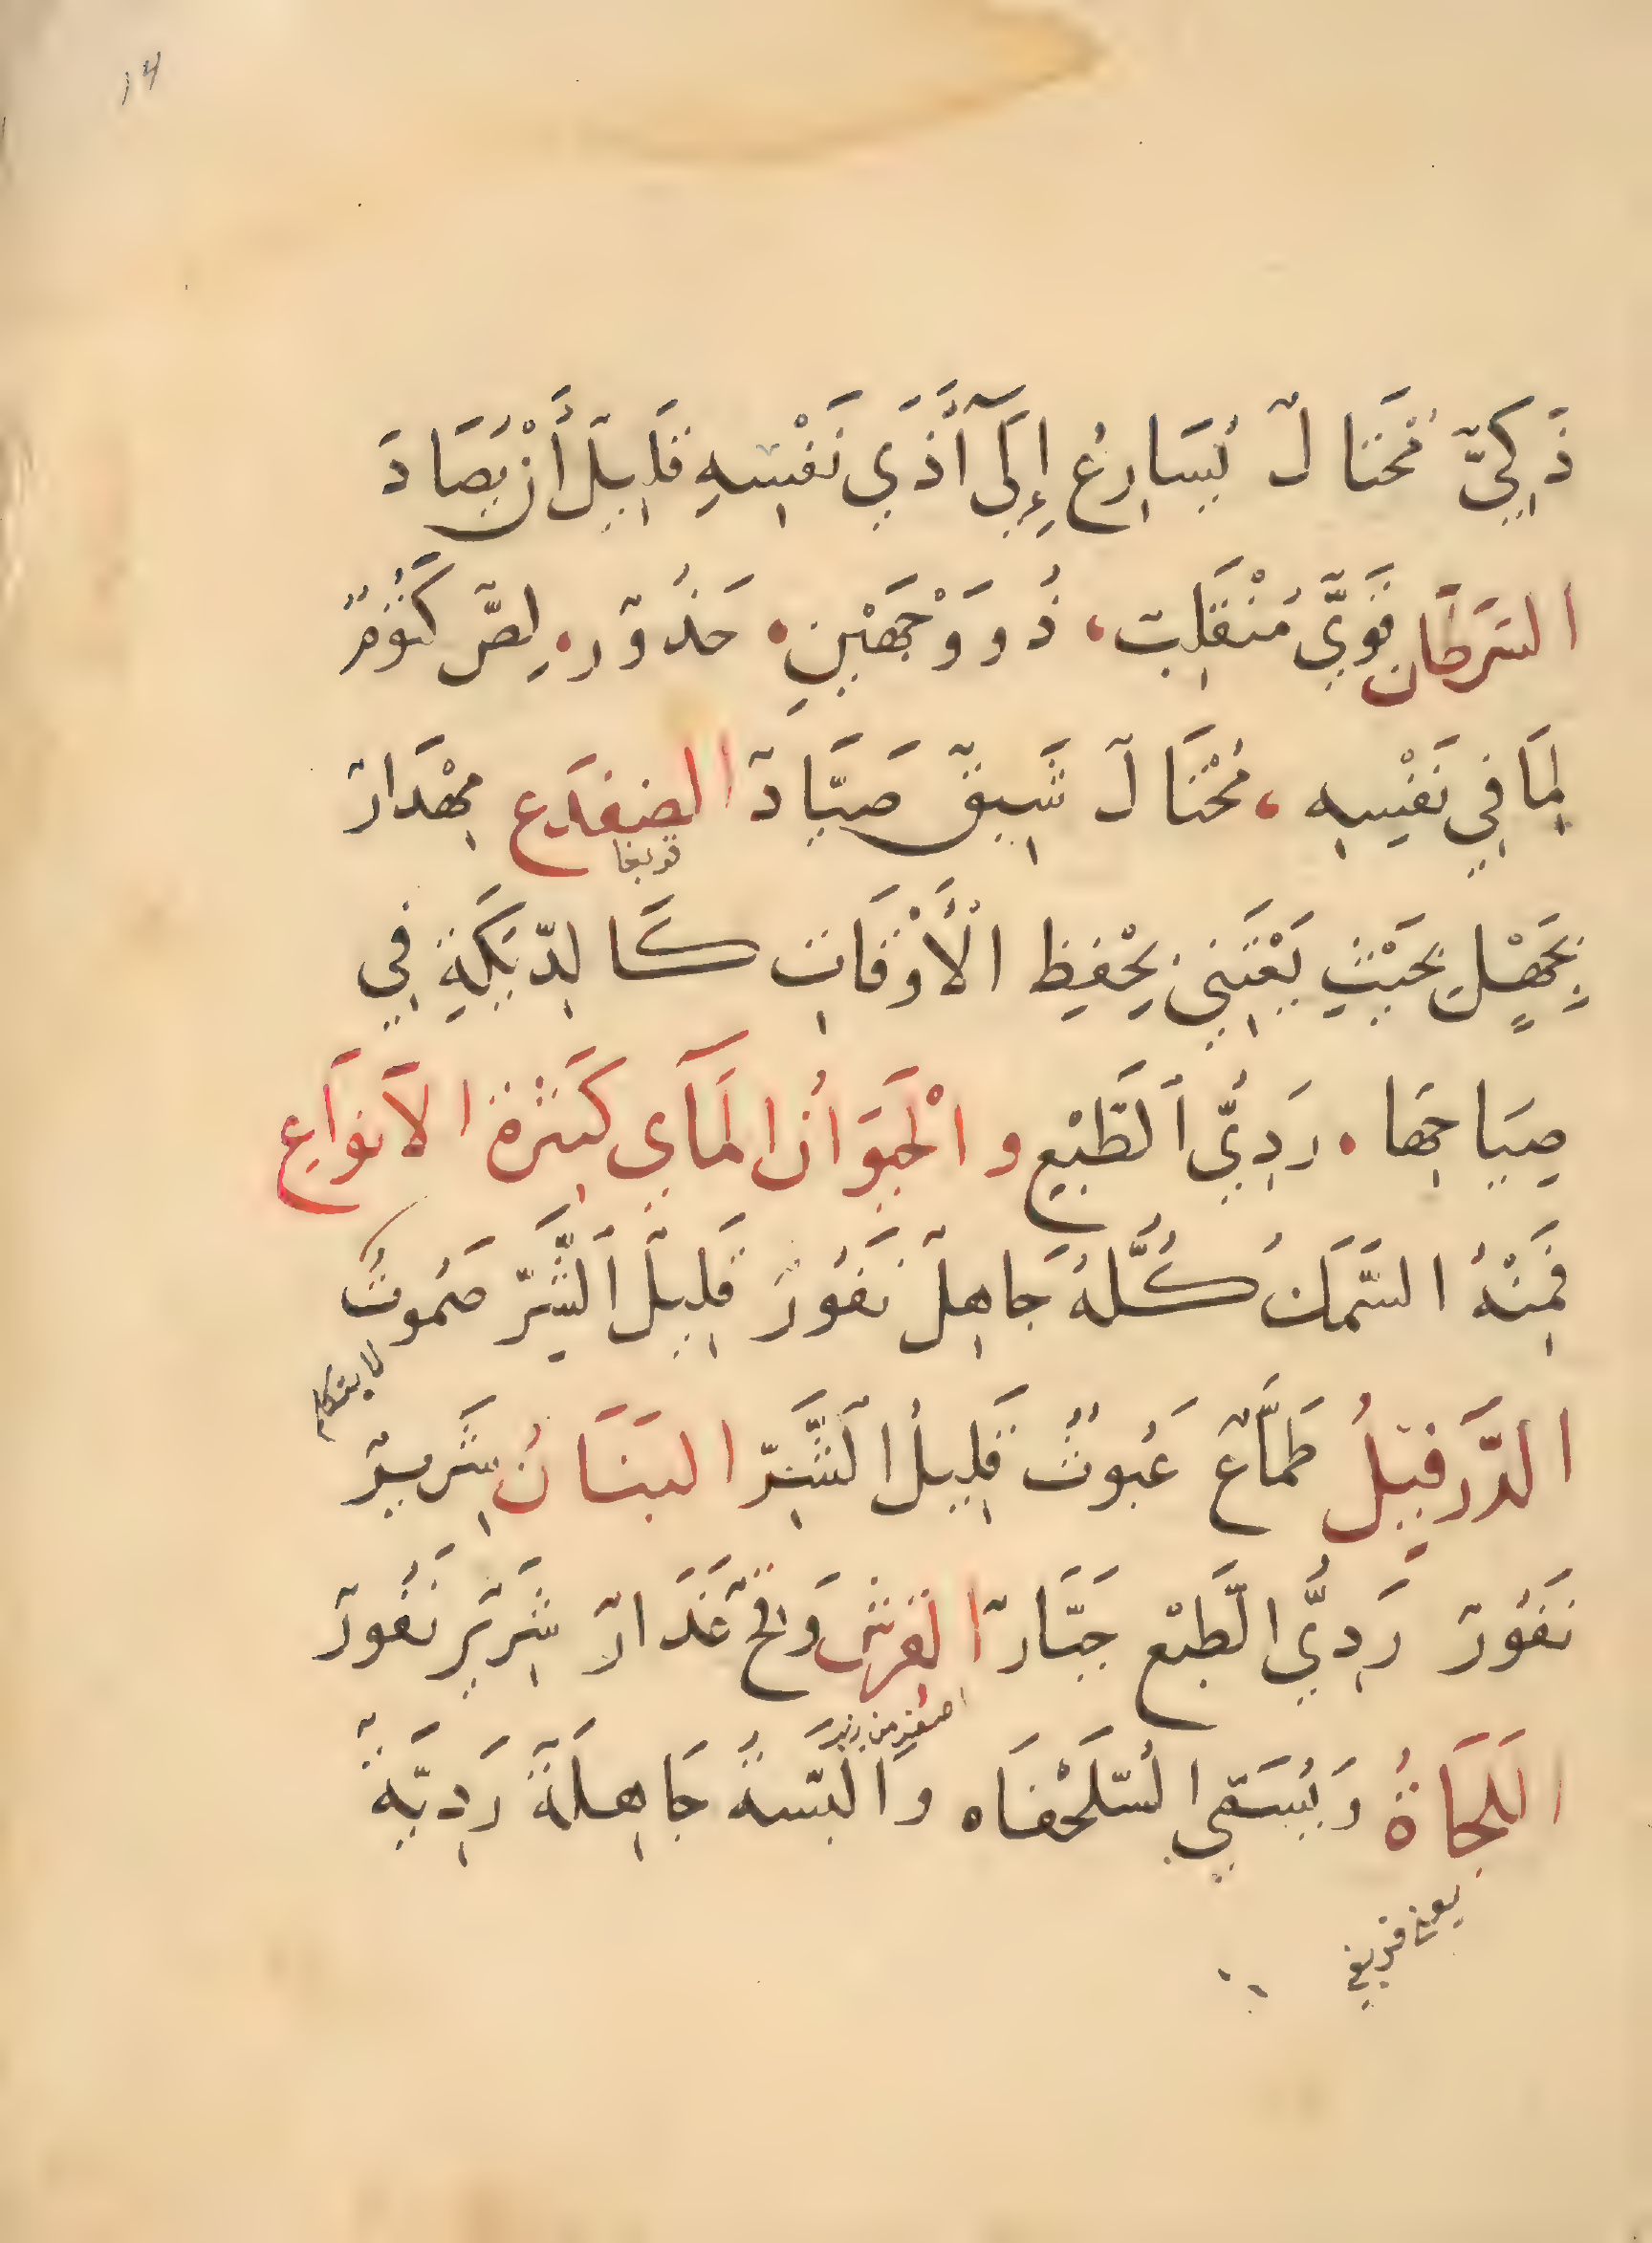 ذَكِيٌّ مُحْتَالٌ يُسَارِعُ إِلَىٰٓ أَذَي نَفْسِهِ قَلِيلٌ أَنْ يُصَادَ
السَّرَطَان قَوِيٌّ مُنْقَلِبٌ، ذُو وَجْهَيْنِ، حَذُورٌ، لِصٌّ كَتُومٌ
لِمَا فِي نَفْسِهِ، مُحْتَالٌ شَبِقٌ صَيَّادٌ الضفدَع مِهْدَارٌ
بِجَهْلٍ بِحَيْثُ يَعْتَنِي بِحِفْظِ الْأَوْقَاتِ كَالدِّيَكَةِ فِي
صِيَاحِهَا، رَدِيُّ الطَّبْعِ والْحَيَوَانُ الْمَآيِ كَثِيرَة الاَنوَاعِ
فَمِنْهُ السَّمَكُ كُلُّهُ جَاهِلٌ نَفُورٌ قَلِيلُ الشَّرِّ صَمُوتٌ
لا يتكلم
الدَّرفِيلُ طَمَّاعٌ عَبُوثٌ قَلِيلُ الشَّرِّ البَنَانُ شِرِّيرٌ
نَفُورٌ رَدِيُّ الطَّبْعِ جَبَّارٌ القرش وَقِحٌ غَدَّارٌ شِرِّيرٌ نَفُورٌ
اللَّجَاةُ وَيُسَمَّي السُّلَحْفَاه وَالبسَةٌ جَاهِلَةٌ رَدِيَّةٌ